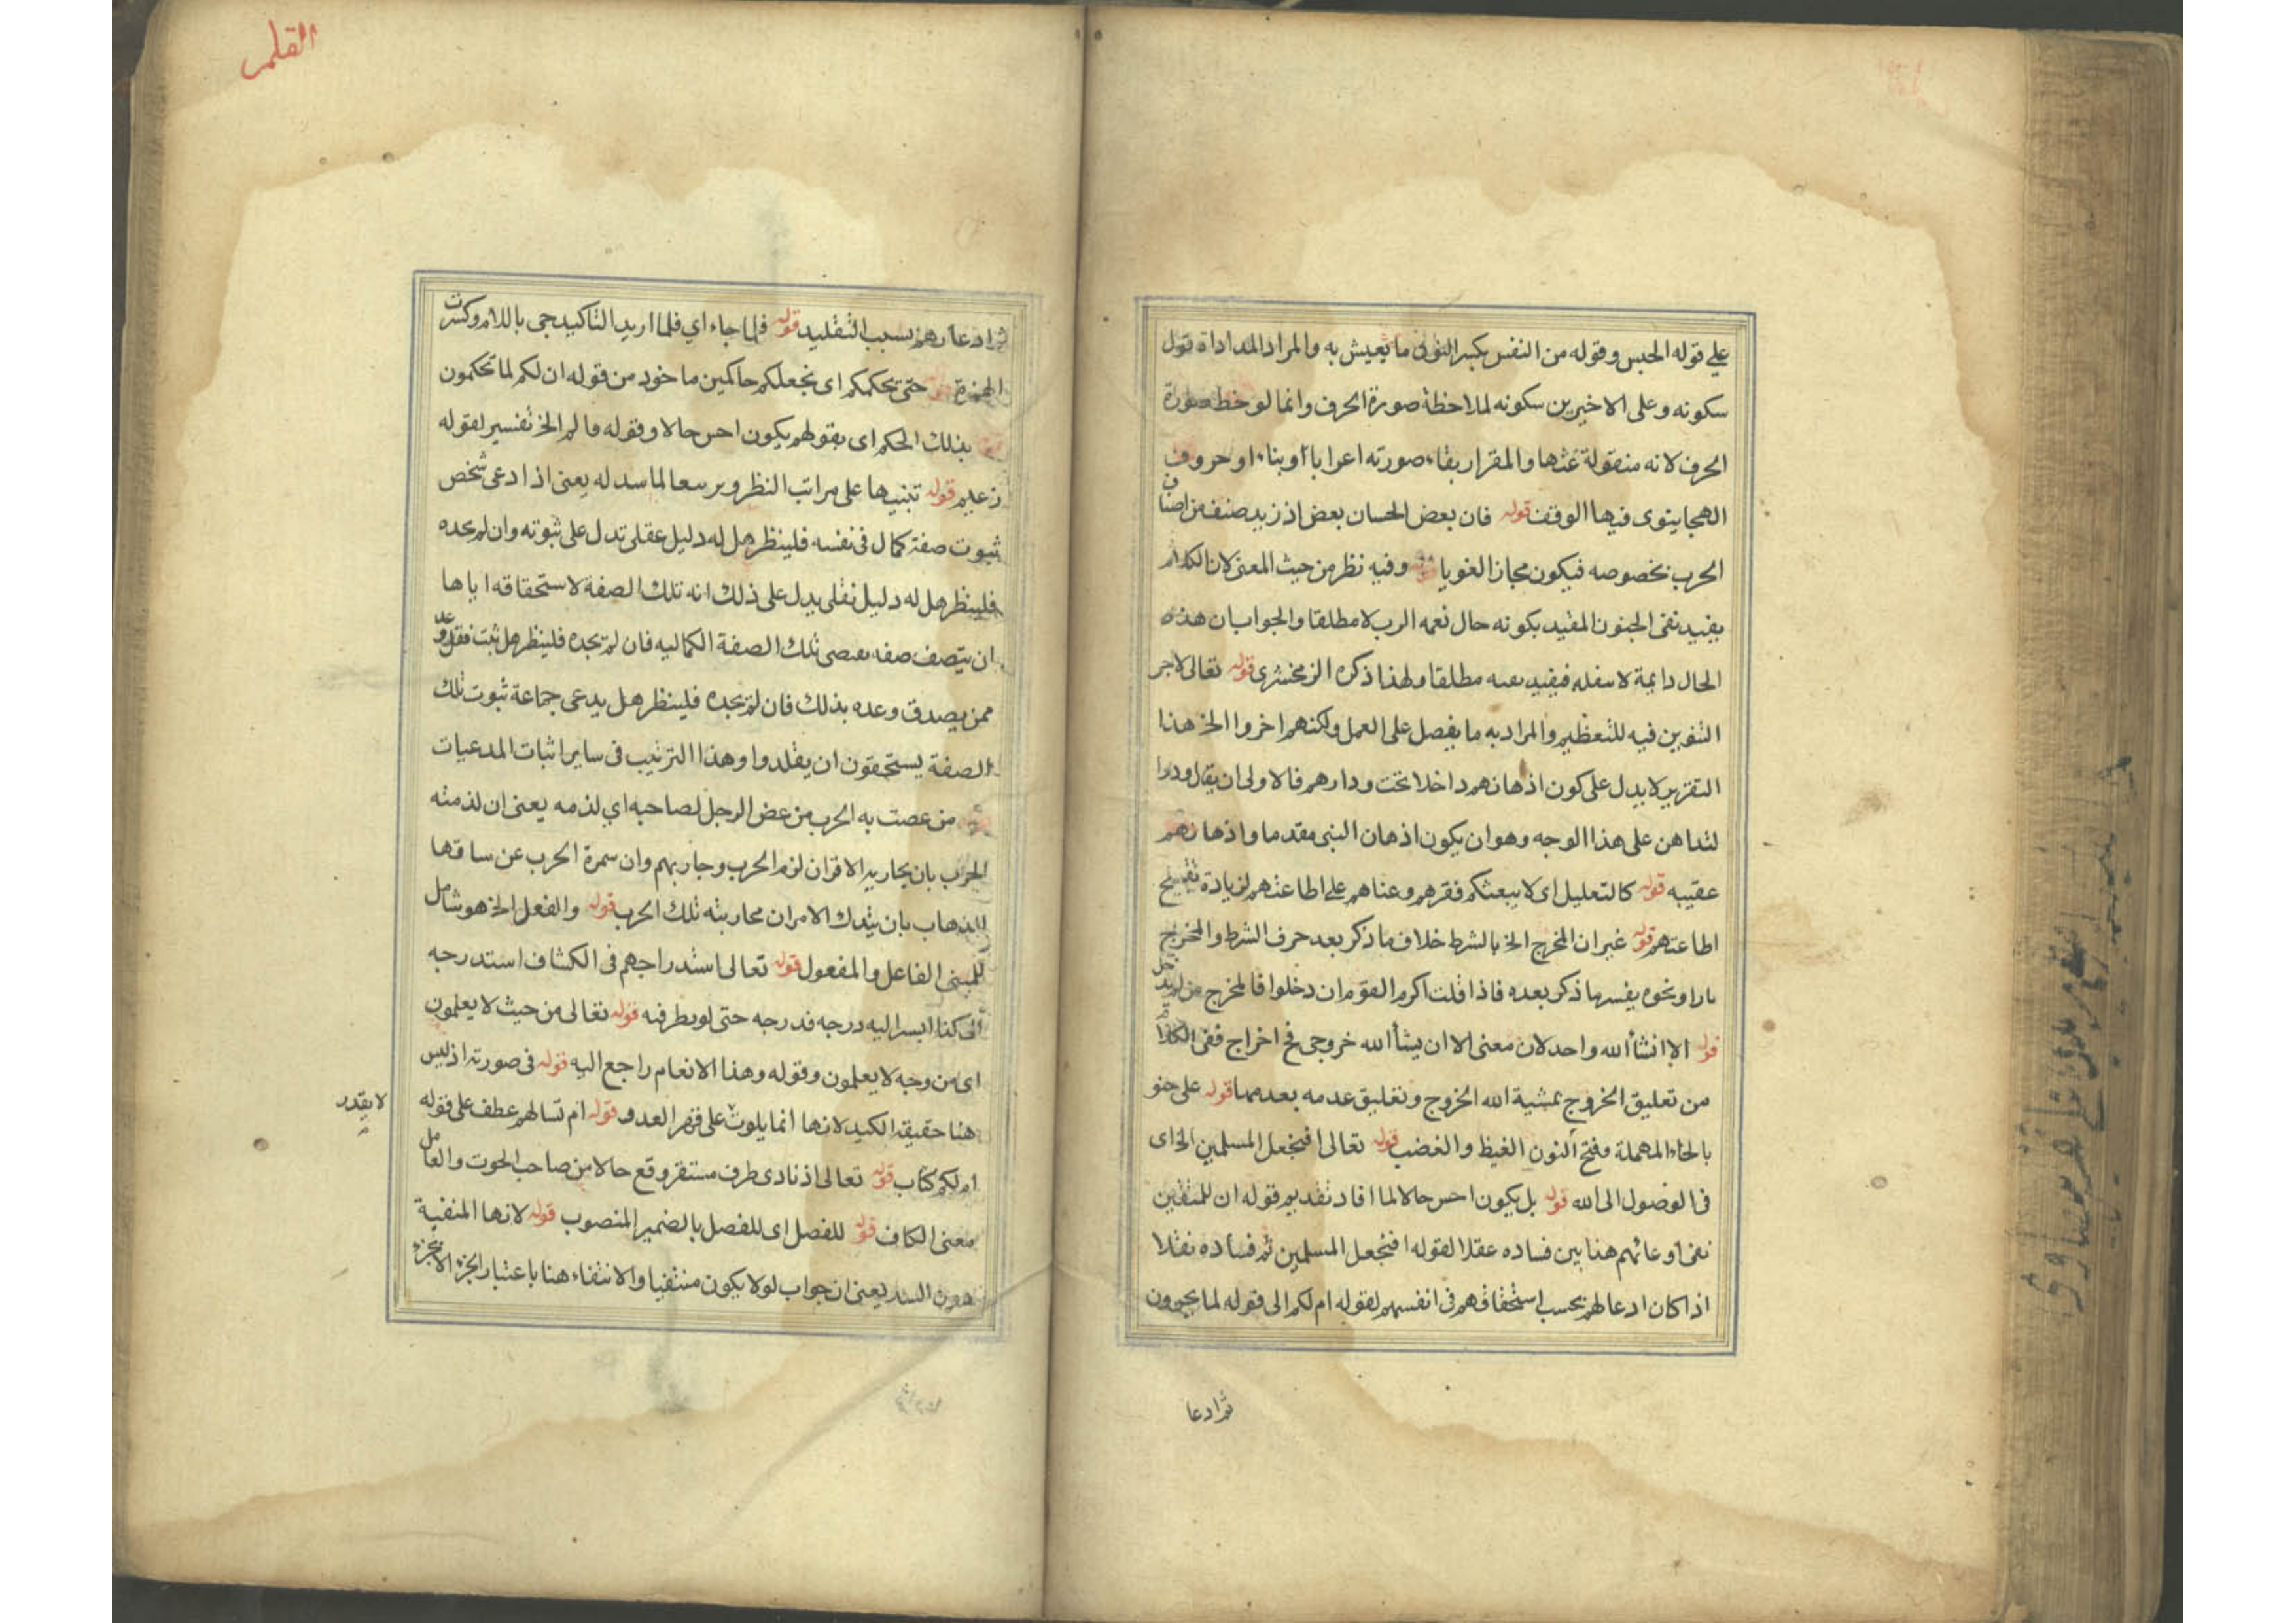 علي قوله الحبس وقوله من النفس بكسر النون ما يعيش به والمراد المداداة قول
سكونه وعلى الاخيرين سكونه لملاحظة صورة الحرف وانما لوحظ صورة
الحرف لانه منقولة عنها والمقرار بقاء صورته اعرابا او بناء او حروف
الهجا ينوى فيها الوقف قوله فان بعض الحسان بعض اذ زيد صنف من اصناف
الحرب بخصوصه فيكون مجازا لغويا وفيه نظر من حيث المعنى لان الكلام
يفيد نفى الجنون المفيد بكونه حال نعمه الرب لا مطلقا والجواب ان هذه
الحال دايمة لا فيفيد مطلقا ولهذا ذكره الزمخشرى قوله تعالى لاجر
التنوين فيه للتعظيم والمراد به ما يفصل على العمل ولكنهم اخروا الخ هذا
التقرير لا يدل على كون اذهانهم داخلا تحت ودارهم فالاولى ان يقال ودوا
لتداهن على هذا الوجه وهو ان يكون اذهان البنى مقدما واذهانهم
عقيبه قوله كالتعليل اى لا يبعثكم فقرهم وعناهم على اطاعتهم لزيادة تفسيح
اطاعتهم قوله غير ان المخرج الخ بالشرط خلاف ما ذكر بعد حرف الشرط والمخرج
ونحوه يفسرها ذكر بعده فاذا قلت اكرم القوم ان دخلوا فالمخرج من لم يدخل
قوله الا انشأ الله واحد لان معنى الا ان يشأ الله خروجى فح اخراج ففى الكلام
من تعليق الخروج بمشية الله الخروج وتعليق عدمه بعدمها قوله على جنو
بالحاء المهملة وفتح النون الغيظ والغضب قوله تعالى افنجعل المسلمين الخ اى
فى الوصول الى الله قوله بل يكون احسن حالا لما افاد تقديم قوله ان للمتقين
نفى اوعائهم هنا بين فساده عقلا لقوله افنجعل المسلمين ثم فساده نقلا
اذا كان ادعالهم بحسب استحقاقهم فى انفسهم لقوله ام لكم الى قوله لما يحيرون
ثم ادعا
القلم
ثم ادعارهم بسبب التقليد قوله فلما جاء اي فلما اريد التاكيد جى باللام وكسرت
الهمزة قوله حتى تحكمكم اى نجعلكم حاكمين ماخوذ من قوله ان لكم لما تحكمون
بذلك الحكم اى بقولهم يكون احسن حالا وقوله فالهم الخ تفسير لقوله
زعيم قوله تنبيها على مراتب النظر لما له يعنى اذا ادعى شخص
ثبوت صفة كمال فى نفسه فلينظر هل له دليل عقلى تدل على ثبوته وان لم يجده
فلينظر هل له دليل نقلى يدل على ذلك انه تلك الصفة لاستحقاقه اياها
ان يتصف صفه تلك الصفة الكماليه فان لم يجده فلينظر هل ثبت فقد وعد
ممن يصدق وعده بذلك فان لم يجده فلينظر هل يدعى جماعة ثبوت تلك
الصفة يستحقون ان يقلدوا وهذا الترتيب فى ساير اثبات المدعيات
من عصت به الحرب من عض الرجل لصاحبه اي لذمه يعنى ان لذمته
الحرب بان يحاربه الاقران لزم الحرب وحاربهم وان سمرة الحرب عن ساقها
للذهاب بان يتدك الامران محاربته تلك الحرب قوله والفعل الخ هو شامل
للمبنى الفاعل والمفعول قوله تعالى استدراجهم فى الكشاف استدرجه
الى كذا اليه درجه فدرجه حتى فيه قوله تعالى من حيث لا يعلمون
اى من وجه لا يعلمون وقوله وهذا الانعام راجع اليه قوله فى صورته اذ ليس
هنا حقيقة الكيد لانها انما يلوث على قهر العدو قوله ام تسالهم عطف على قوله
لا يقدر
ام لكم كتاب قوله تعالى اذ نادى طرف مستقر وقع حالا من صاحب الحوت والعامل
معنى الكاف قوله للفصل اى للفصل بالضمير المنصوب قوله لانها المنفية
دون السند يعنى ان جواب لولا يكون منتفيا والانتفاء هنا باعتبار الجزء